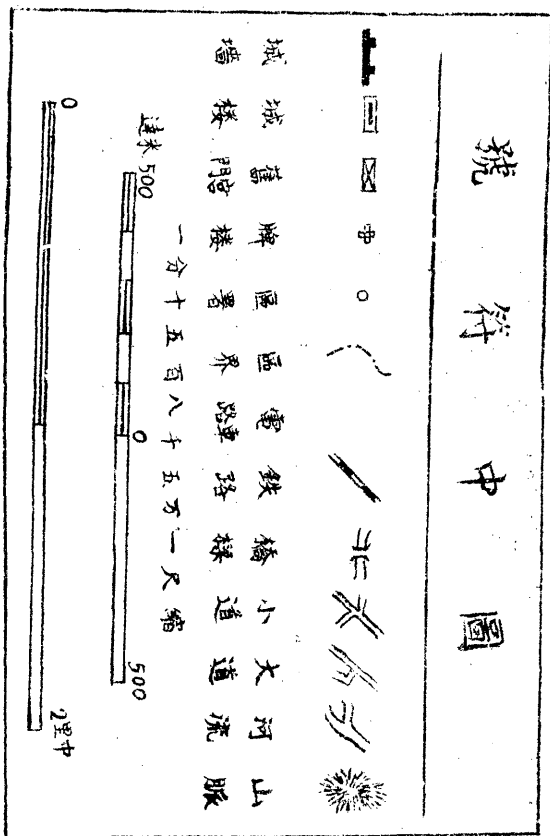 圖中符號
山脈
河流
大道
小道
橋樑
鉄路
電車路
區界
區署
牌楼
舊宫門
城楼
城墻
縮尺一万五千八百五十分一
米達 500 0 500
0 2中里